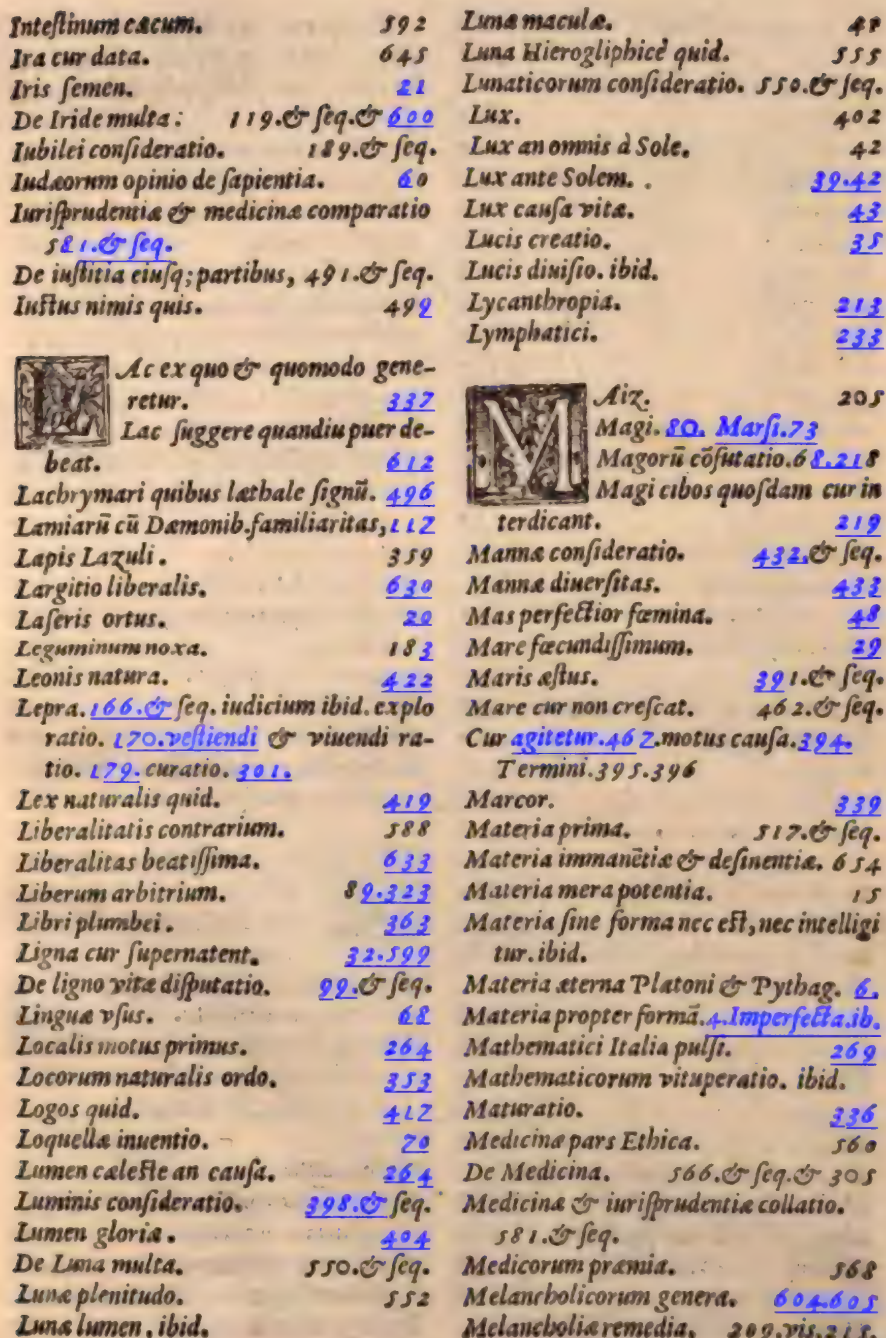 Intestinum cæcum. 592
Ira cur data. 645
Iris ſemen. 21
De Iride multa: 119.& ſeq.& 600
Iubilei conſideratio. 189.& ſeq.
Iudæorum opinio de ſapientia. 60
Iuriſprudentiæ & medicinæ comparatio
581.& ſeq.
De iuſtitia eiuſq; partibus, 491.& ſeq.
Iuſtus nimis quis. 499
LAc ex quo & quomodo gene-
retur. 337
Lac ſuggere quandiu puer de-
beat. 612
Lachrymari quibus læthale ſignū. 496
Lamiarū cū Dæmonib.familiaritas, 117
Lapis Lazuli. 359
Largitio liberalis. 630
Laſeris ortus. 20
Leguminum noxa. 183
Leonis natura. 422
Lepra. 166.& ſeq. iudicium ibid. explo
ratio. 170.veſtiendi & viuendi ra-
tio. 179. curatio. 301.
Lex naturalis quid. 419
Liberalitatis contrarium. 588
Liberalitas beatiſſima. 633
Liberum arbitrium. 89.323
Libri plumbei. 363
Ligna cur ſupernatent. 32.599
De ligno vitæ diſputatio. 99.& ſeq.
Linguæ vſus. 68
Localis motus primus. 264
Locorum naturalis ordo. 353
Logos quid. 417
Loquellæ inuentio. 70
Lumen cæleſte an cauſa. 264
Luminis conſideratio. 398.& ſeq.
Lumen gloriæ. 404
De Luna multa. 550.& ſeq.
Lunæ plenitudo. 552
Lunæ lumen, ibid.
Lunæ maculæ.
Luna Hierogliphicè quid. 555
Lunaticorum conſideratio. 550.& ſeq.
Lux. 402
Lux an omnis à Sole. 42
Lux ante Solem. 39.42
Lux cauſa vitæ. 43
Lucis creatio. 35
Lucis diuiſio. ibid.
Lycanthropia. 213
Lymphatici. 233
MAiz. 205
Magi. 80. Marſi.73
Magorū cōfutatio.68.218
Magi cibos quoſdam cur in
terdicant. 219
Mannæ conſideratio. 432.& ſeq.
Mannæ diuerſitas. 433
Mas perfectior fœmina. 48
Mare fœcundiſſimum. 29
Maris æſtus. 391.& ſeq.
Mare cur non creſcat. 462.& ſeq.
Cur agitetur.467.motus cauſa.394.
Termini.395.396
Marcor. 339
Materia prima. 517.& ſeq.
Materia immanētiæ & deſinentiæ. 654
Materia mera potentia. 15
Materia ſine forma nec eſt, nec intelligi
tur. ibid.
Materia æterna Platoni & Pythag. 6.
Materia propter formā.4.Imperfecta.ib.
Mathematici Italia pulſi. 269
Mathematicorum vituperatio. ibid.
Maturatio. 336
Medicinæ pars Ethica. 560
De Medicina. 566.& ſeq.& 305
Medicinæ & iuriſprudentiæ collatio.
581.& ſeq.
Medicorum præmia. 568
Melancholicorum genera. 604.605
Melancholiæ remedia. 209.vis.215.